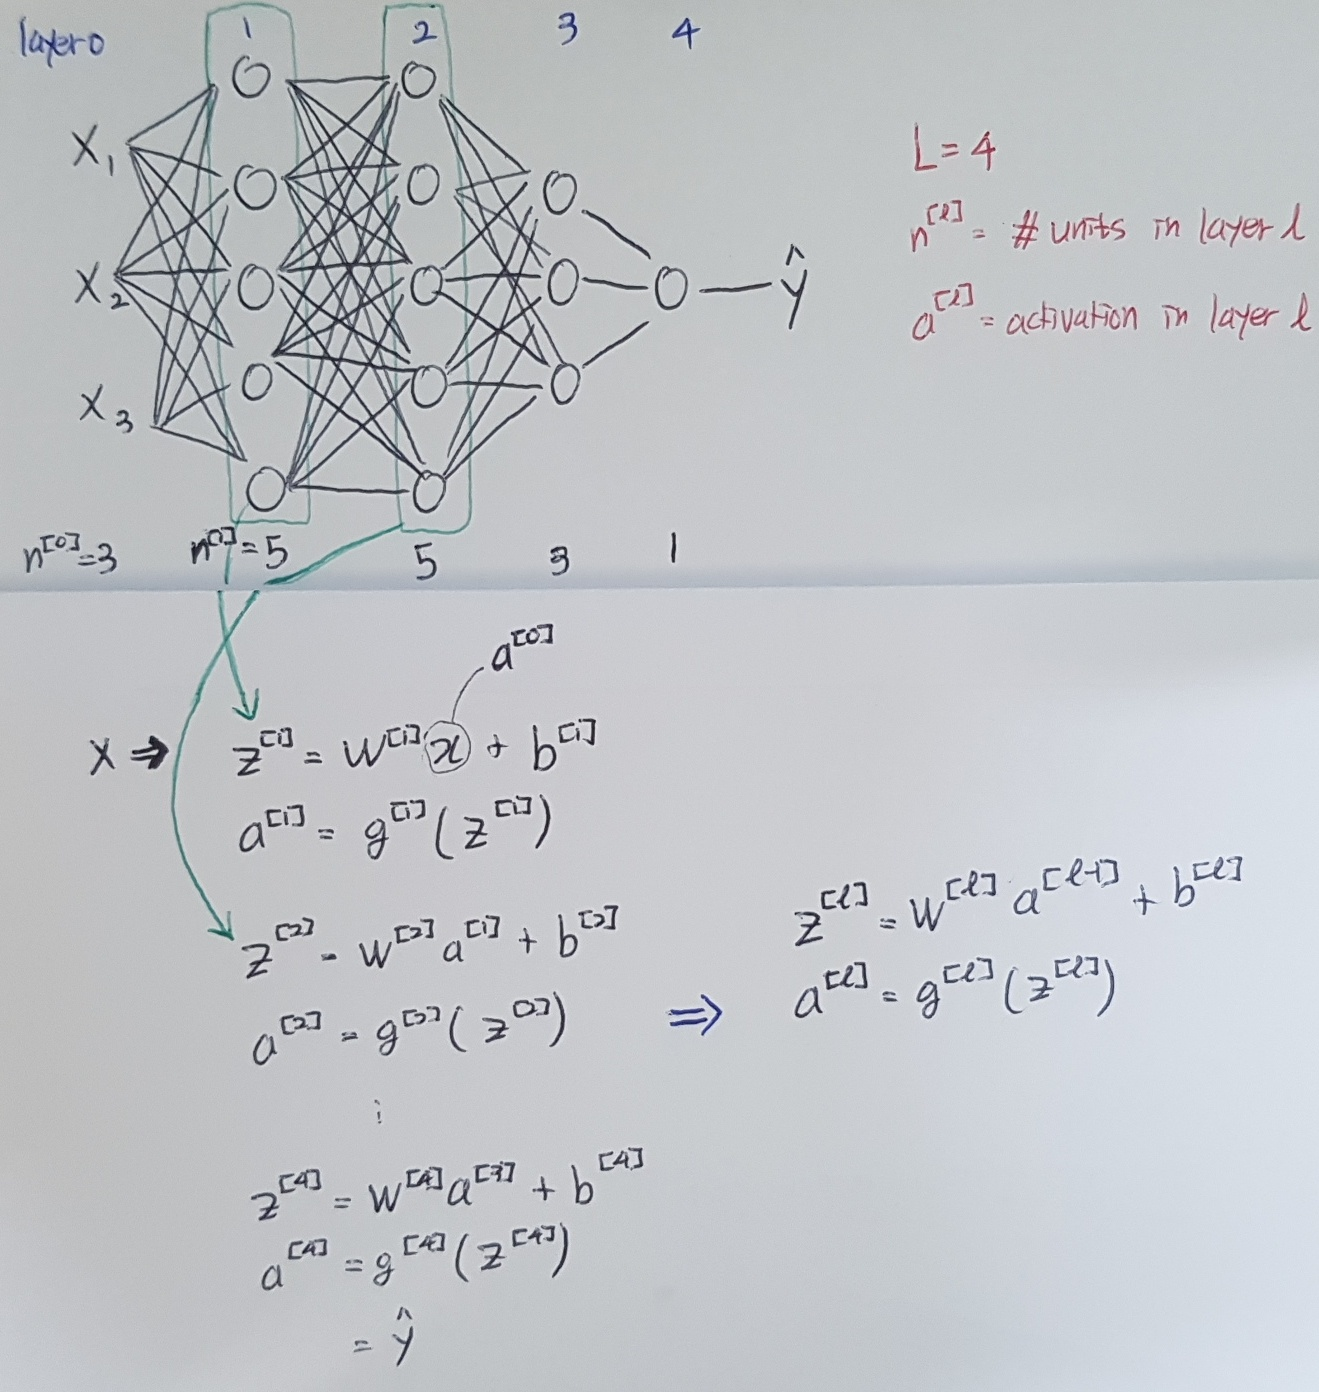 layer 0 1 2 3 4
X₁
X₂
X₃
ŷ
L = 4
n^[l] = # units in layer l
a^[l] = activation in layer l
n^[0] = 3 n^[1] = 5 5 3 1
a^[0]
X ⇒ z^[1] = W^[1] x + b^[1]
a^[1] = g^[1] (z^[1])
z^[2] = W^[2] a^[1] + b^[2]
a^[2] = g^[2] (z^[2])
⋮
z^[4] = W^[4] a^[3] + b^[4]
a^[4] = g^[4] (z^[4])
= ŷ
⇒ z^[l] = W^[l] a^[l-1] + b^[l]
a^[l] = g^[l] (z^[l])